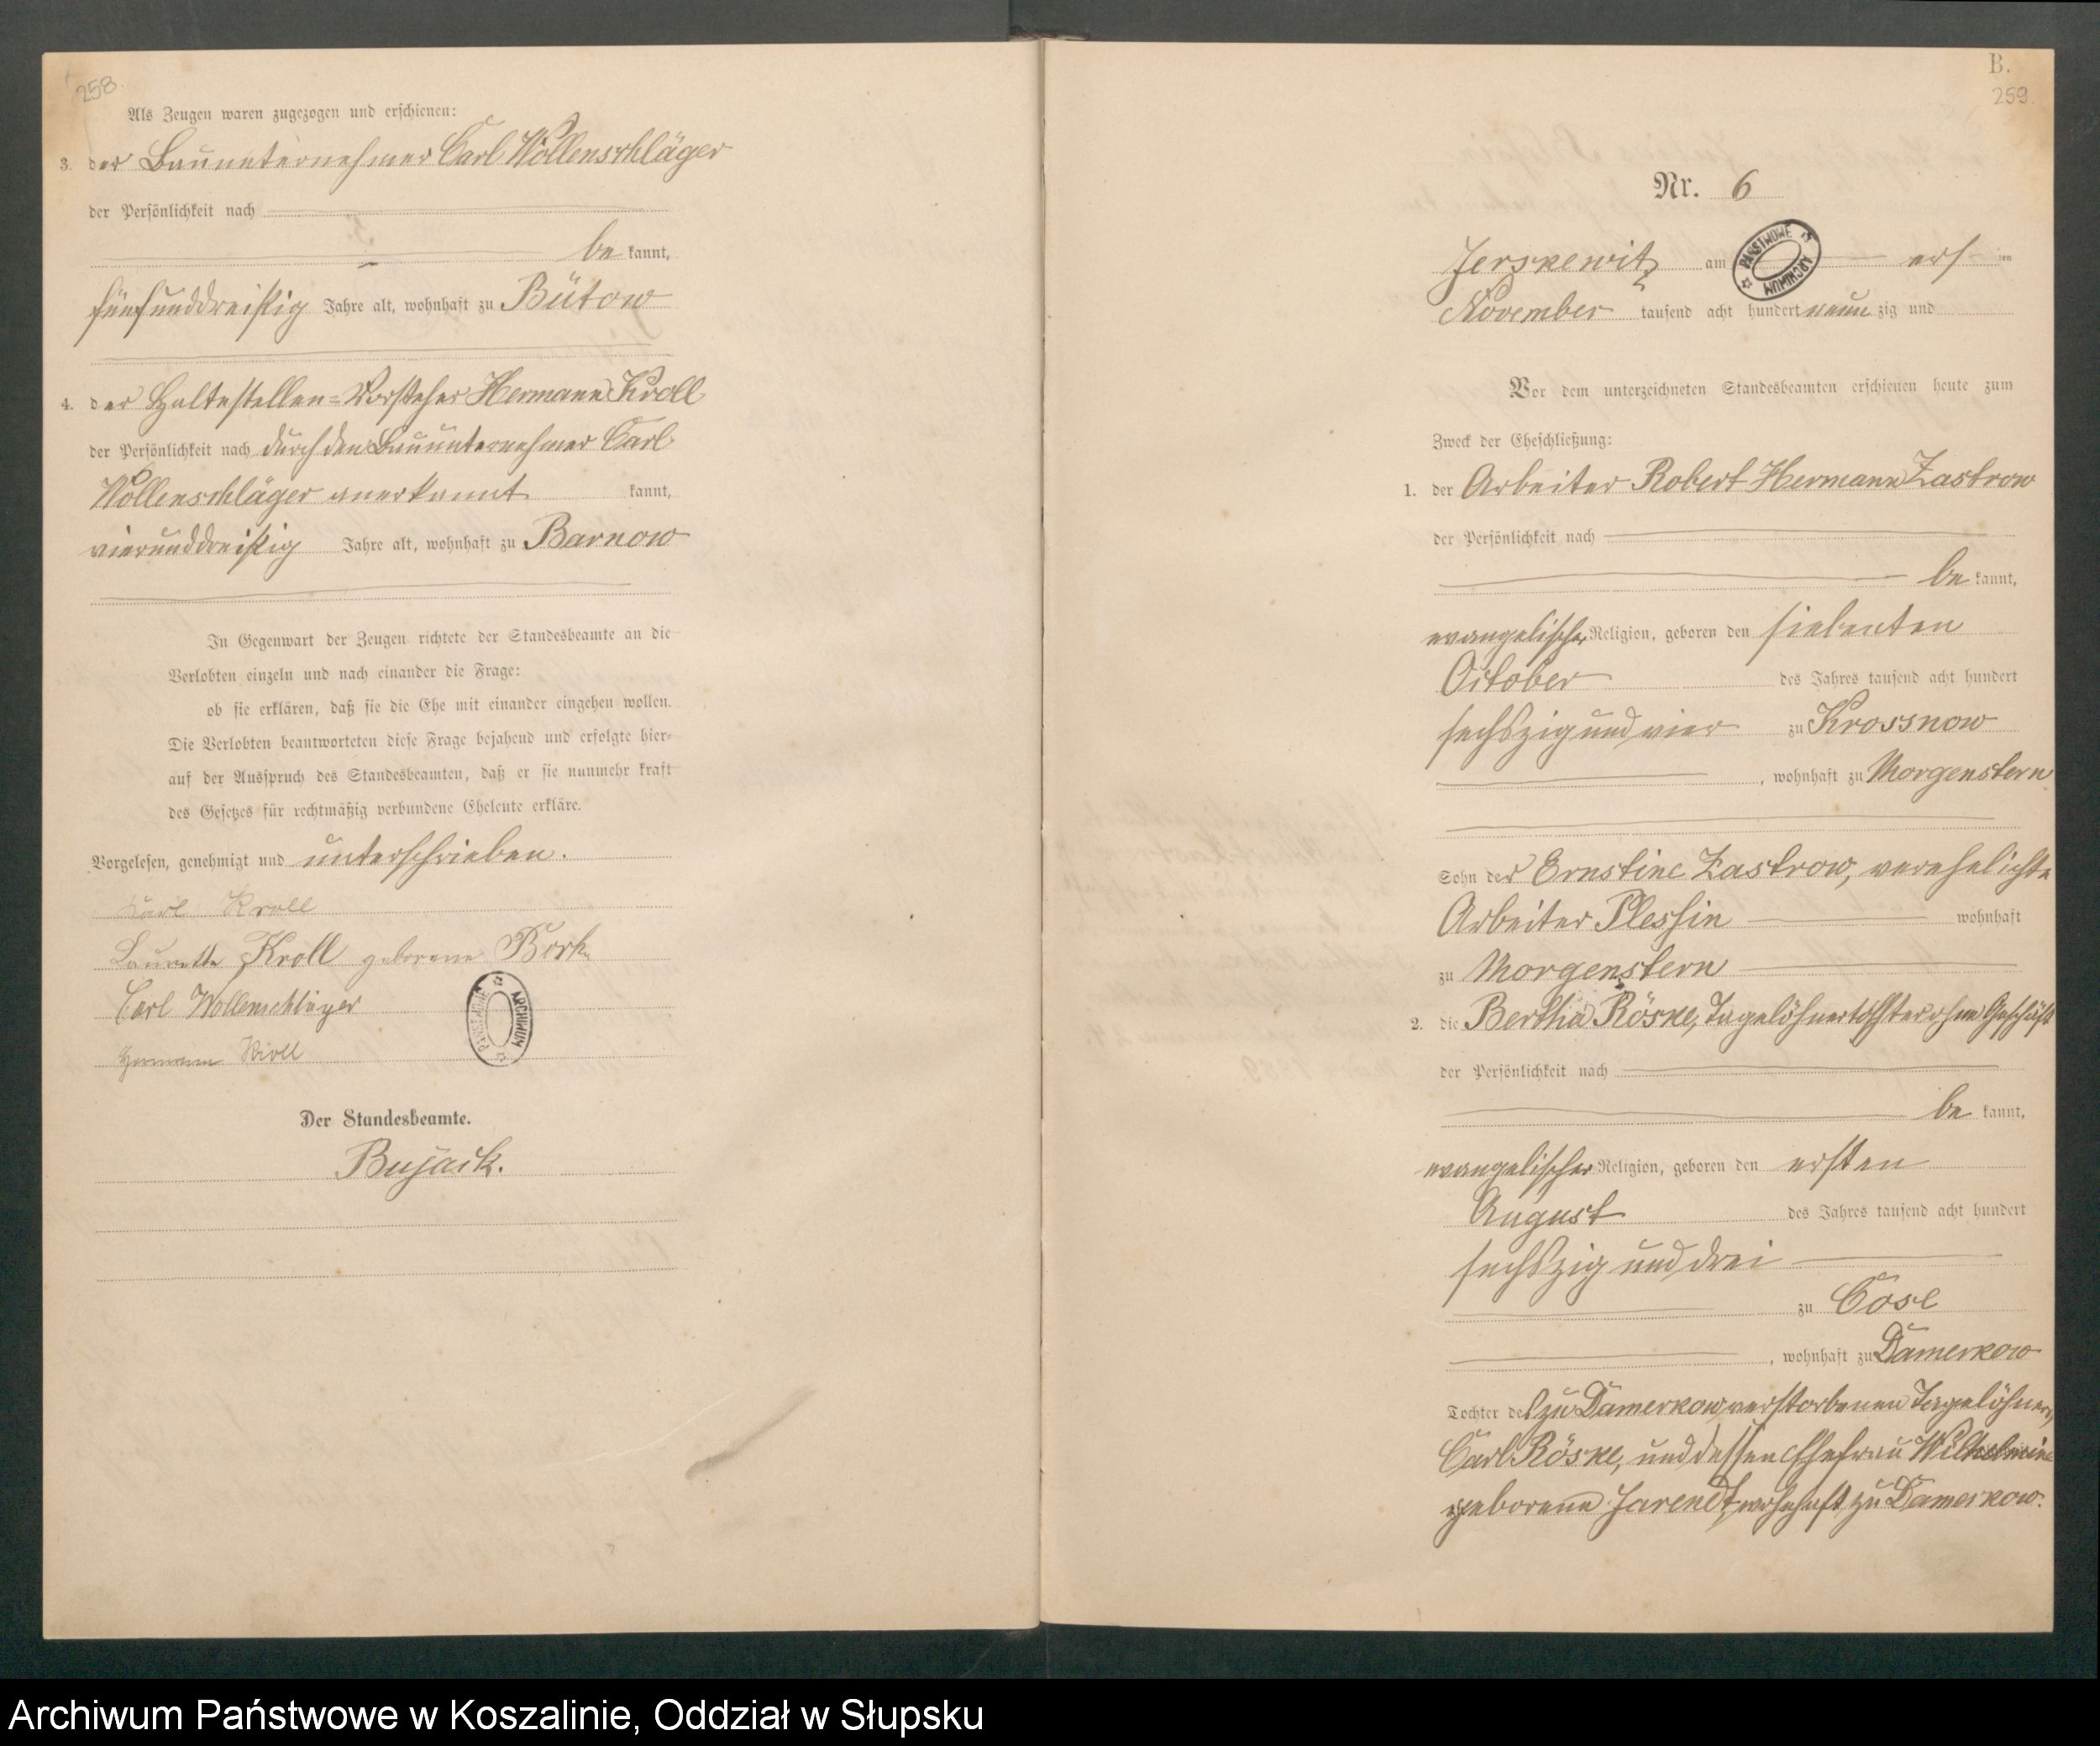 258.
Als Zeugen waren zugezogen und erschienen:
3. der Bauunternehmer Carl Wollenschläger
der Persönlichkeit nach
be kannt,
fünfunddreißig Jahre alt, wohnhaft zu Bütow
4. der Haltestellen-Vorsteher Hermann Kroll
der Persönlichkeit nach durch den Bauunternehmer Carl
Wollenschläger anerkannt kannt,
vierunddreißig Jahre alt, wohnhaft zu Barnow
In Gegenwart der Zeugen richtete der Standesbeamte an die
Verlobten einzeln und nach einander die Frage:
ob sie erklären, daß sie die Ehe mit einander eingehen wollen.
Die Verlobten beantworteten diese Frage bejahend und erfolgte hier-
auf der Ausspruch des Standesbeamten, daß er sie nunmehr kraft
des Gesetzes für rechtmäßig verbundene Eheleute erkläre.
Vorgelesen, genehmigt und unterschrieben.
Karl Kroll
Kroll geborene Bork
Carl Wollenschläger
Hermann Kroll
PAŃSTWOWE ARCHIWUM
Der Standesbeamte.
Bujack.
B.
259.
Nr. 6
Jerskewitz am ers ten
PAŃSTWOWE ARCHIWUM
November tausend acht hundert neun zig und
Vor dem unterzeichneten Standesbeamten erschienen heute zum
Zweck der Eheschließung:
1. der Arbeiter Robert Hermann Zastrow
der Persönlichkeit nach
be kannt,
evangelischer Religion, geboren den siebenten
October des Jahres tausend acht hundert
sechszig und vier zu Krossnow
, wohnhaft zu Morgenstern
Sohn der Ernstine Zastrow, verehelichte
Arbeiter Plessin wohnhaft
zu Morgenstern
2. die Bertha Röske, Tagelöhnertochter ohne Geschäft
der Persönlichkeit nach
be kannt,
evangelischer Religion, geboren den ersten
August des Jahres tausend acht hundert
sechszig und drei
zu Cose
, wohnhaft zu Damerkow
Tochter des zu Damerkow verstorbenen Tagelöhners
Carl Röske, und dessen Ehefrau Wilhelmine
geborene Jarendt, wohnhaft zu Damerkow.
Archiwum Państwowe w Koszalinie, Oddział w Słupsku